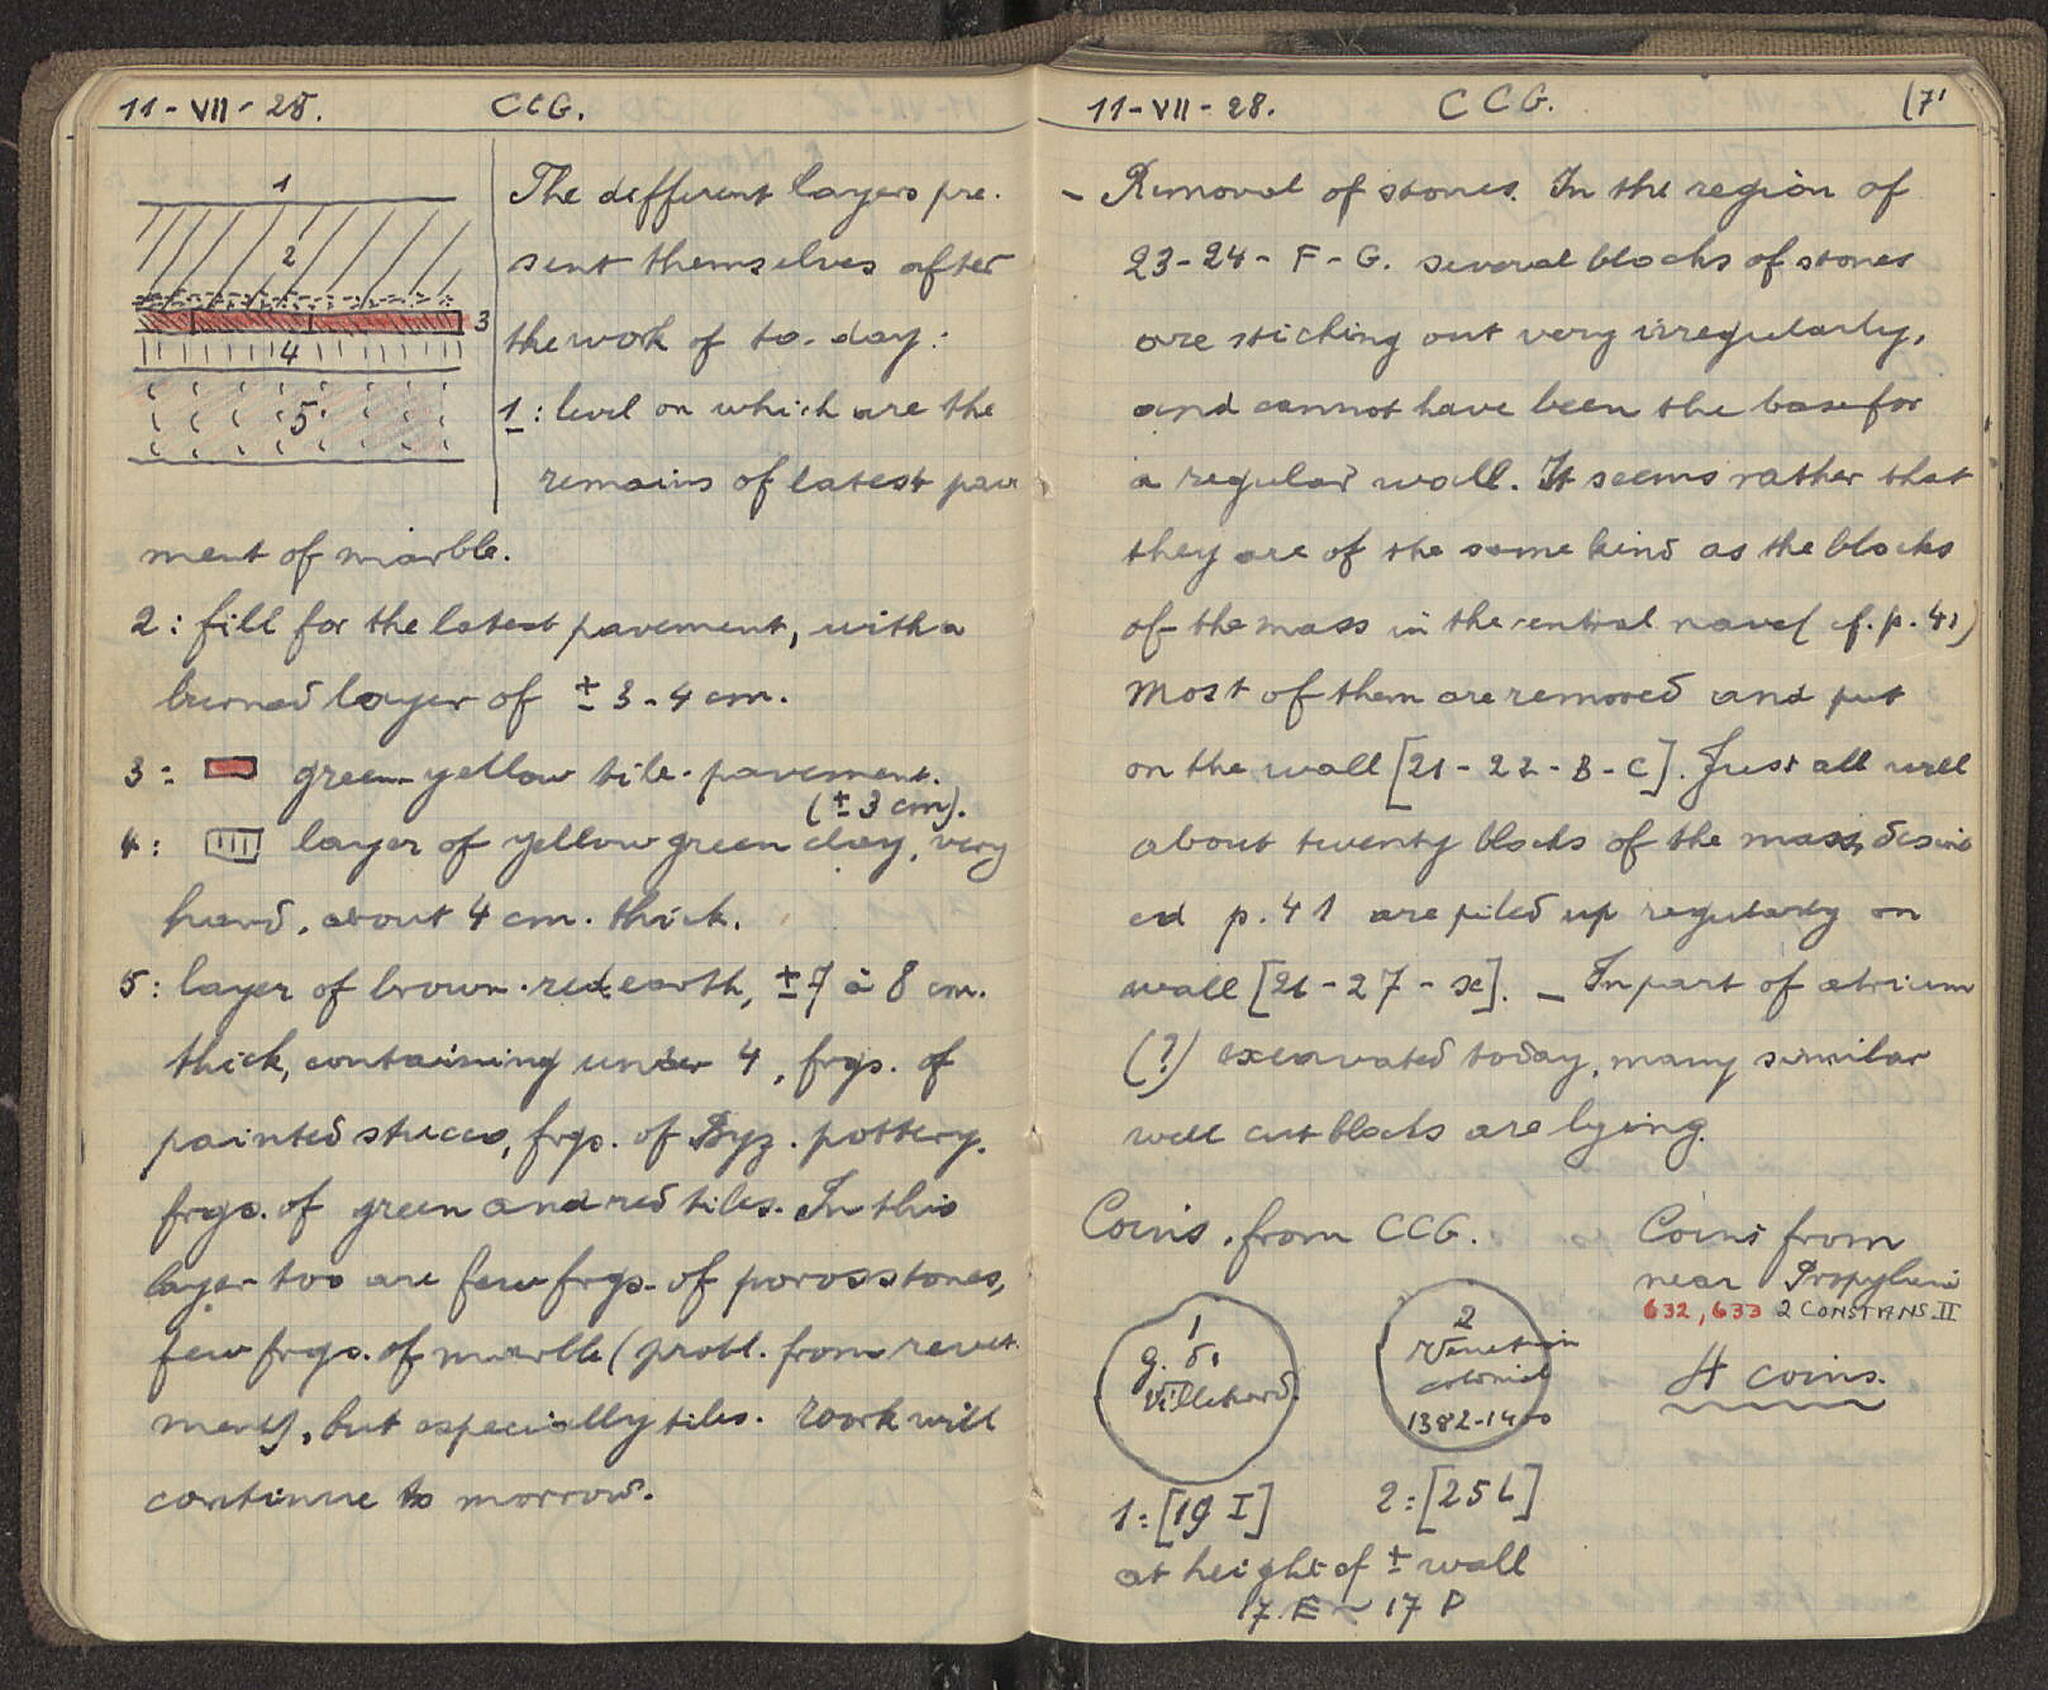 11-VII-28. CCG.
1
2
3
4
5
The different layers pre-
sent themselves after
the work of to-day:
1: level on which are the
remains of latest pave
ment of marble.
2: fill for the latest pavement, with a
burned layer of ± 3-4 cm.
3: green-yellow tile-pavement.
(± 3 cm).
4: layer of yellow green clay, very
hard, about 4 cm. thick.
5: layer of brown-red earth, ± 7 à 8 cm.
thick, containing under 4, frgs. of
painted stucco, frgs. of Byz. pottery.
frgs. of green and red tiles. In this
layer too are few frgs. of poros stones,
few frgs. of marble (probl. from revet-
ment), but especially tiles. Work will
continue to morrow.
11-VII-28. CCG. 
- Removal of stones. In the region of
23-24-F-G. several blocks of stones
are sticking out very irregularly,
and cannot have been the base for
a regular wall. It seems rather that
they are of the same kind as the blocks
of the mass in the central nave (cf. p. 41)
Most of them are removed and put
on the wall [21-22-B-C]. Just all well
about twenty blocks of the mass,
ed p. 41 are piled up regularly on
wall [21-27-x]. - In part of atrium
(?) excavated today, many similar
well cut blocks are lying.
Coins from CCG.
1
g. d.
Villehard.
2
Venetian
colonial
1382-1400
Coins from
near Propylaea
632, 633 2 CONSTANS II
4 coins.
1:[19 I] 2:[25 L]
at height of ± wall
17 E - 17 P